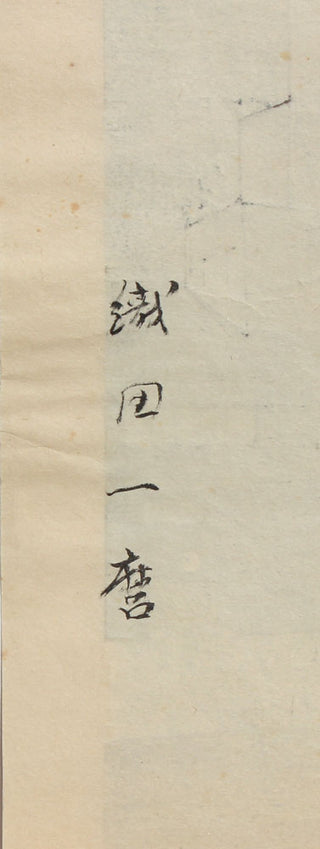 織田一磨